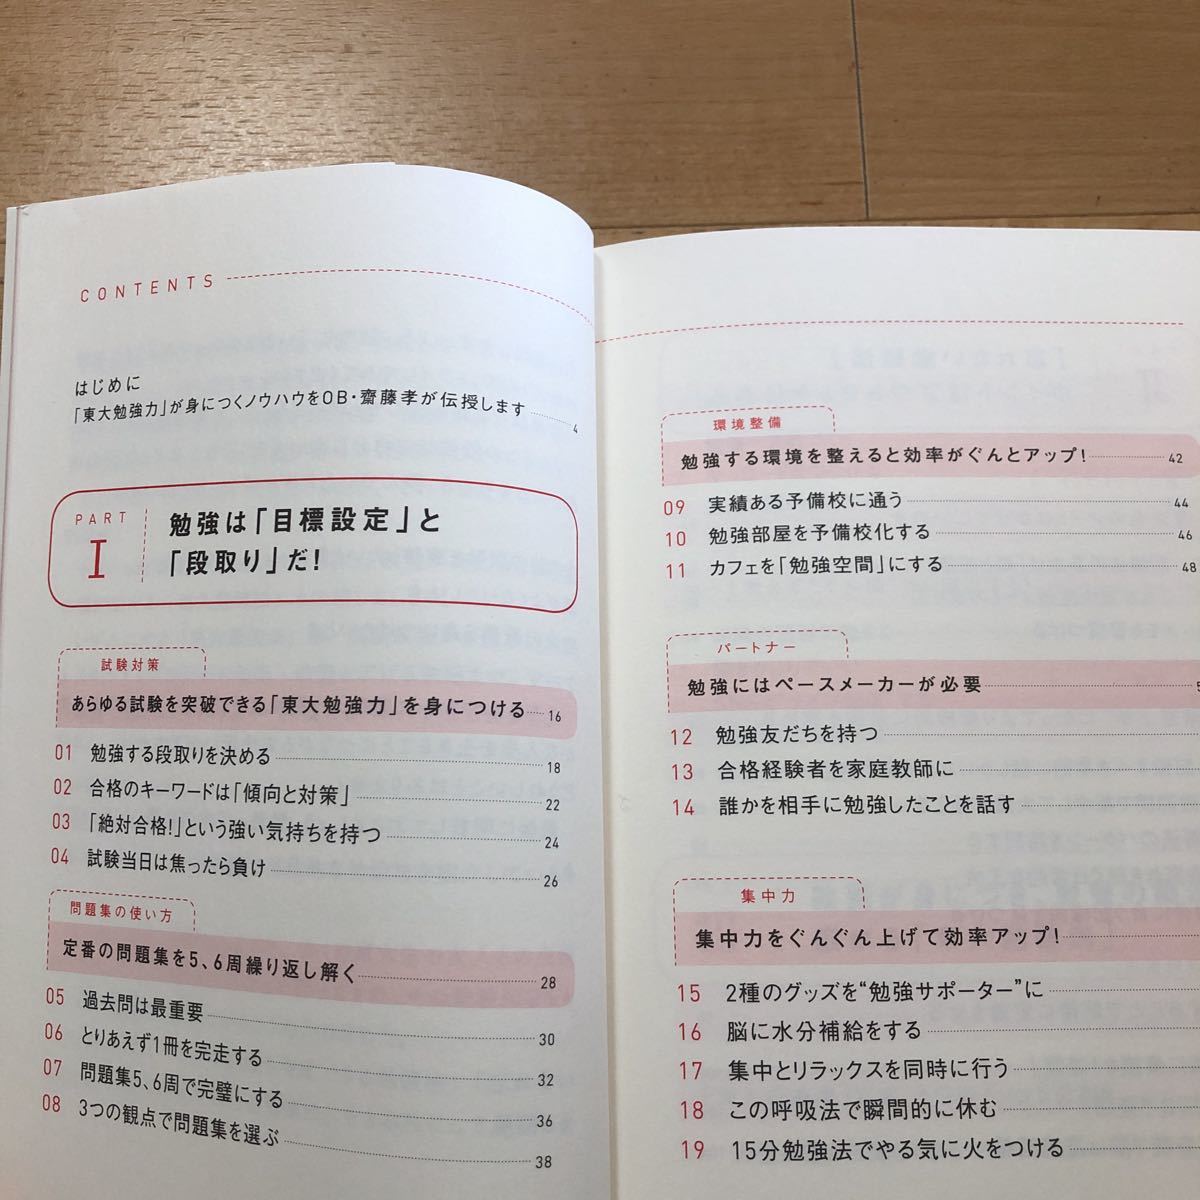 CONTENTS
はじめに
「東大勉強力」が身につくノウハウをOB・齋藤孝が伝授します 4
PART
I
勉強は「目標設定」と
「段取り」だ!
試験対策
あらゆる試験を突破できる「東大勉強力」を身につける 16
01 勉強する段取りを決める 18
02 合格のキーワードは「傾向と対策」 22
03 「絶対合格!」という強い気持ちを持つ 24
04 試験当日は焦ったら負け 26
問題集の使い方
定番の問題集を5、6周繰り返し解く 28
05 過去問は最重要 30
06 とりあえず1冊を完走する 32
07 問題集5、6周で完璧にする 36
08 3つの観点で問題集を選ぶ 38
環境整備
勉強する環境を整えると効率がぐんとアップ! 42
09 実績ある予備校に通う 44
10 勉強部屋を予備校化する 46
11 カフェを「勉強空間」にする 48
パートナー
勉強にはペースメーカーが必要
12 勉強友だちを持つ
13 合格経験者を家庭教師に
14 誰かを相手に勉強したことを話す
集中力
集中力をぐんぐん上げて効率アップ!
15 2種のグッズを“勉強サポーター”に
16 脳に水分補給をする
17 集中とリラックスを同時に行う
18 この呼吸法で瞬間的に休む
19 15分勉強法でやる気に火をつける